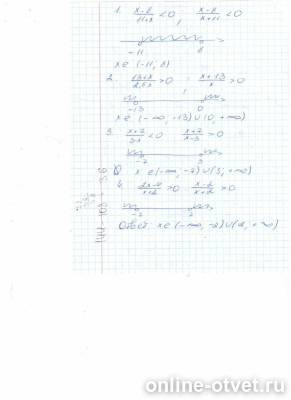 1. (x-8)/(11+x) < 0 , (x-8)/(x+11) < 0
-11 8
x∈(-11, 8)
2. (13+x)/(2,5x) > 0 ; (x+13)/x > 0
-13 0
x∈(-∞, -13)∪(0, +∞)
3. (x+7)/(3-x) < 0 (x+7)/(x-3) > 0
-7 3
x∈(-∞, -7)∪(3, +∞)
4. >0 >0
-2 2
Ответ x∈(-∞, -2)∪(2, +∞)
online-otvet.ru